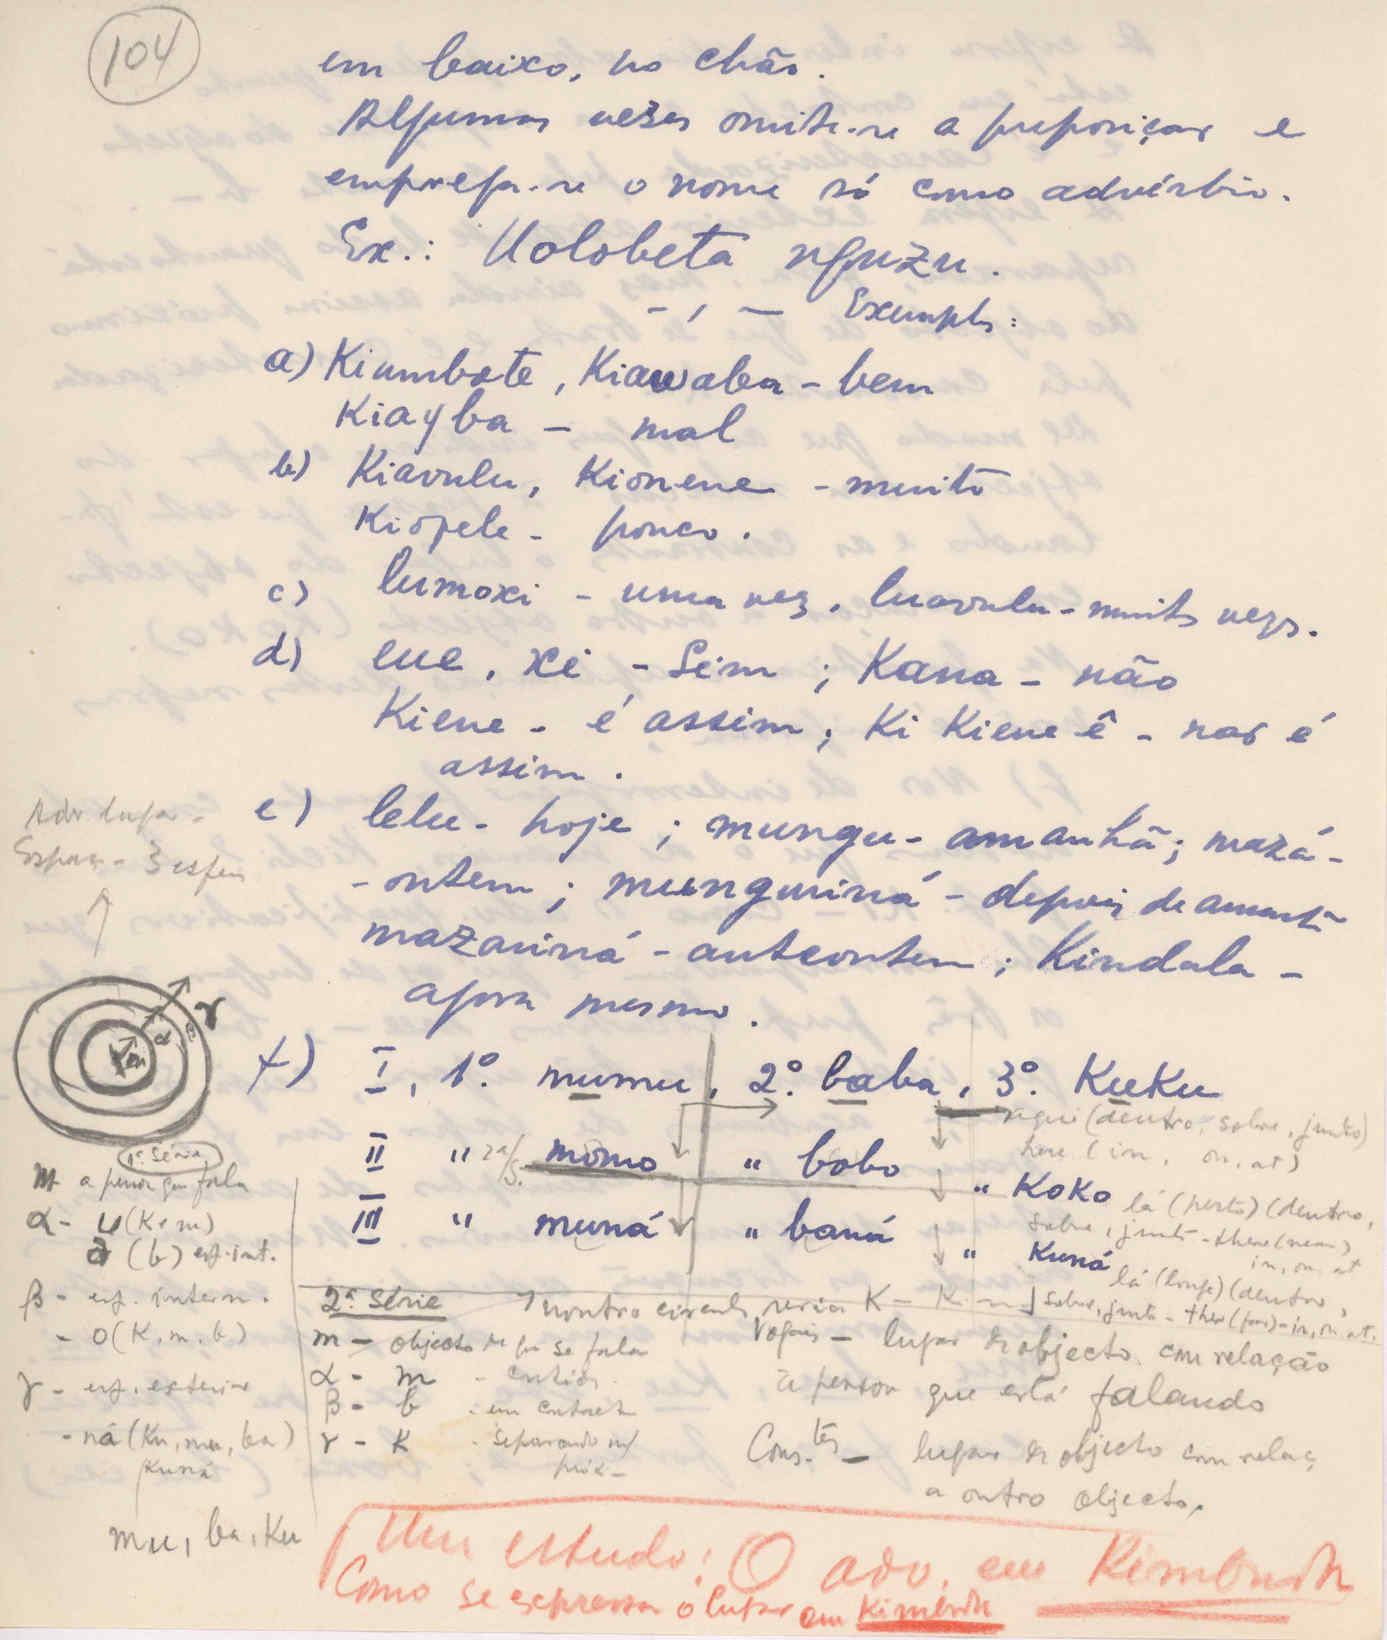 104
em baixo, no chão.
Algumas vezes omite-se a preposição e
emprega-se o nome só como advérbio.
Ex.: Uolobeta nguzu.
Exemplos:
a) Kiambote, Kiauaba - bem
Kiayba - mal
b) Kiavulu, Kionene - muito
Kiopele - pouco.
c) lumoxi - uma vez, luavulu - muitas vezes.
d) ene, xi - Sim; Kana - não
Kiene - é assim; Ki Kiene ê - não é
assim.
e) lelu - hoje; mungu - amanhã; mazá -
- ontem; munguiná - depois de amanhã
mazauiná - anteontem; Kindala -
agora mesmo.
Adv. lugar -
Espaço - 3 esferas
m α β γ
f) I, 1º. mumu, 2º. baba, 3º. KuKu
aqui (dentro, sobre, junto)
here (in, on, at)
II " 2ª/s. momo " bobo " KoKo lá (perto) (dentro,
sobre, junto - there (near)
in, on, at
III " muná " baná " Kuná lá (longe) (dentro,
sobre, junto - there (far) - in, on, at.
1ª. Série
m a pessoa que fala
α - u (K e m)
a (b) esf. int.
β - esf. interm.
- o (K, m, b)
γ - esf. exterior
- ná (Ku, mu, ba)
Kuná
mu, ba, Ku
2ª. Série
m - objecto de que se fala
α - m
β - b - em contacto
γ - K - separando
Vogais - lugar do objecto com relação
à pessoa que está falando
Cons.tes - lugar do objecto com relaç
a outro objecto.
Um estudo: O adv. em Kimbundu
Como se expressa o lugar em Kimbundu